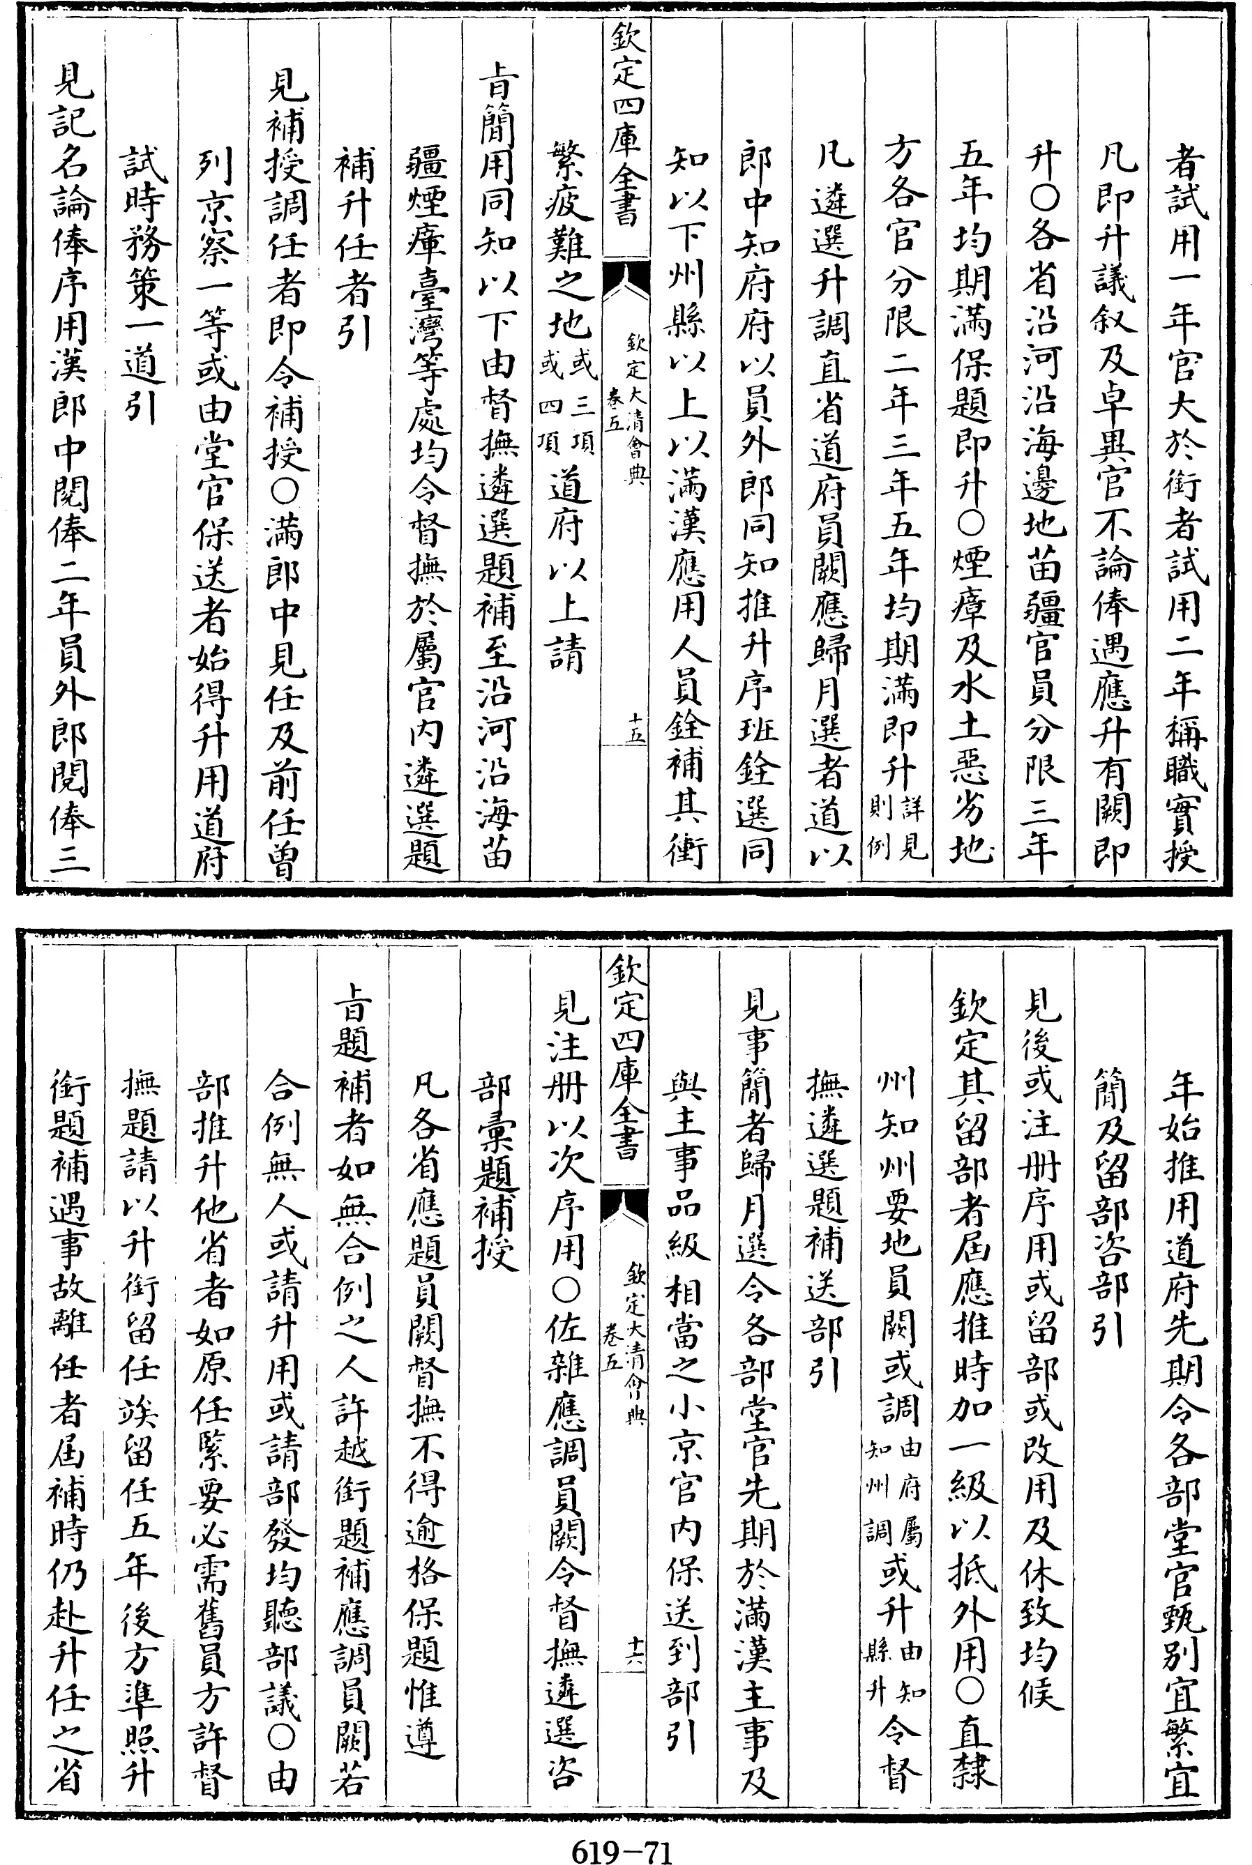 者試用一年官大於銜者試用二年稱職實授
凡即升議叙及卓異官不論俸遇應升有闕即
升〇各省沿河沿海邊地苗疆官員分限三年
五年均期滿保題即升〇煙瘴及水土惡劣地
方各官分限二年三年五年均期滿即升詳見則例
凡遴選升調直省道府員闕應歸月選者道以
郎中知府府以員外郎同知推升序班銓選同
知以下州縣以上以滿漢應用人員銓補其衝
欽定四庫全書
欽定大清會典
卷五
十五
繁疲難之地或三項或四項道府以上請
旨簡用同知以下由督撫遴選題補至沿河沿海苗
疆煙瘴臺灣等處均令督撫於屬官內遴選題
補升任者引
見補授調任者即令補授〇滿郎中見任及前任曾
列京察一等或由堂官保送者始得升用道府
試時務策一道引
見記名論俸序用漢郎中閱俸二年員外郎閱俸三
年始推用道府先期令各部堂官甄別宜繁宜
簡及留部咨部引
見後或注冊序用或留部或改用及休致均候
欽定其留部者屆應推時加一級以抵外用〇直隸
州知州要地員闕或調由府屬知州調或升由知縣升令督
撫遴選題補送部引
見事簡者歸月選令各部堂官先期於滿漢主事及
與主事品級相當之小京官內保送到部引
欽定四庫全書
欽定大清會典
卷五
十六
見注冊以次序用〇佐雜應調員闕令督撫遴選咨
部彚題補授
凡各省應題員闕督撫不得逾格保題惟遵
旨題補者如無合例之人許越銜題補應調員闕若
合例無人或請升用或請部發均聽部議〇由
部推升他省者如原任緊要必需舊員方許督
撫題請以升銜留任竢留任五年後方準照升
銜題補遇事故離任者屆補時仍赴升任之省
619-71